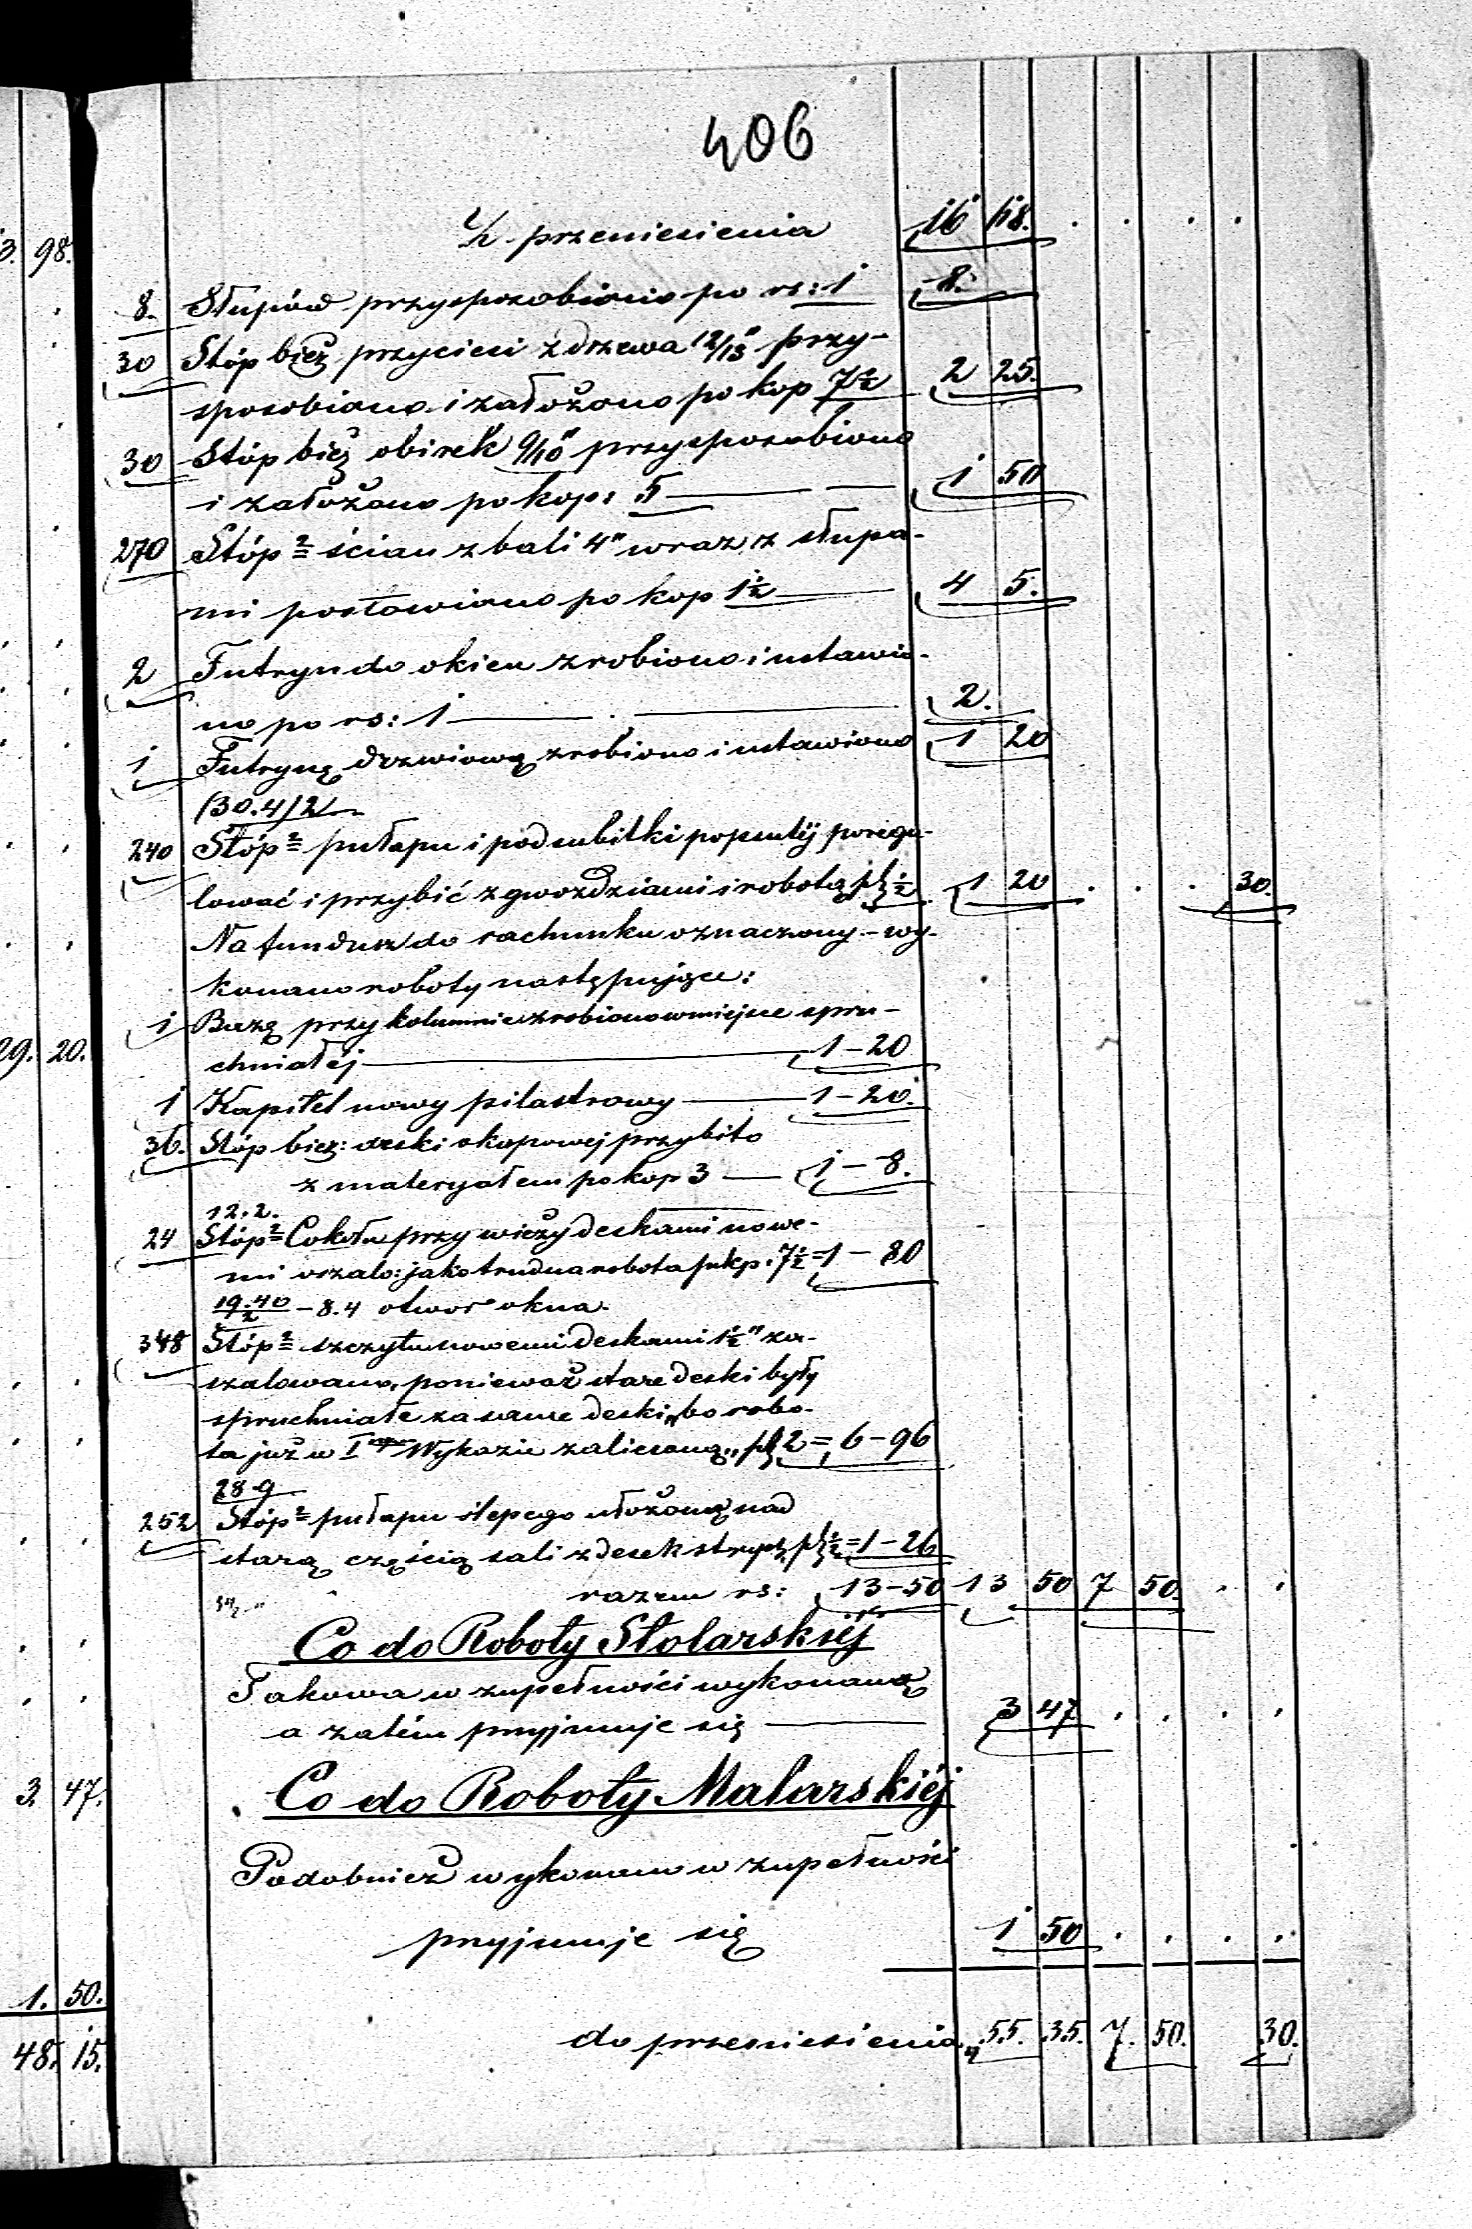 406
z przeniesienia 16 68.
8. Słupów przysposobiono po rs: 1 8.
30 Stóp bież przycieси z drzewa 12/13" przy-
sposobiono i założono po kop 7½ 2 25.
30 Stóp bież obirek 9/10" przysposobiono
i założono po kop: 5 1 50
270 Stóp 2 ścian z bali 4" wraz z słupa-
mi postawiono po kop 1½ 4 5.
2 Futryn do okien zrobiono i ustawio-
no po rs: 1 2.
1 Futrynę drzwiową zrobiono i ustawiono 1 20
(30.4)2
240 Stóp 2 pułapu i podsubitki popsutéj poregu-
lować i przybić z gwoździami i robotą ½ 1 20 . . . 30.
Na fundusz do rachunku oznaczony - wy-
konano roboty następujące:
1 Bazę przy kolumnie zrobiono w miejsce spru-
chniałéj 1-20
1 Kapitel nowy pilastrowy 1-20.
36. Stóp bież: deski okapowej przybito
z materyałem po kop 3 1-8.
12.2.
24 Stóp 2 Cokołu przy wieży deskami nowe-
mi oszalo: jako trudna robota po kp: 7½ = 1-80
19.40/2 - 8.4 otwor okna.
348 Stóp 2 szczytu nowemi deskami 1½" za-
szalowano, ponieważ stare deski były
spruchniałe za same deski „bo robo-
ta już w I Wykazie zaliczoną„ 2 = 6-96
28.9
252 Stóp 2 pułapu ślepego ułożoną nad
starą częścią sali z desek ½ = 1-26
razem rs: 13-50 13 50 7 50. . .
Co do Roboty Stolarskiéj
Takowa w zupełności wykonaną
a zatém przyjmuje się 3 47 . . . .
Co do Roboty Malarskiéj
Podobnież wykonano w zupełności
przyjmuje się 1 50 . . . .
do przeniesienia 55. 35. 7. 50. 30.
3. 98.
29. 20.
3. 47.
1. 50.
48. 15.